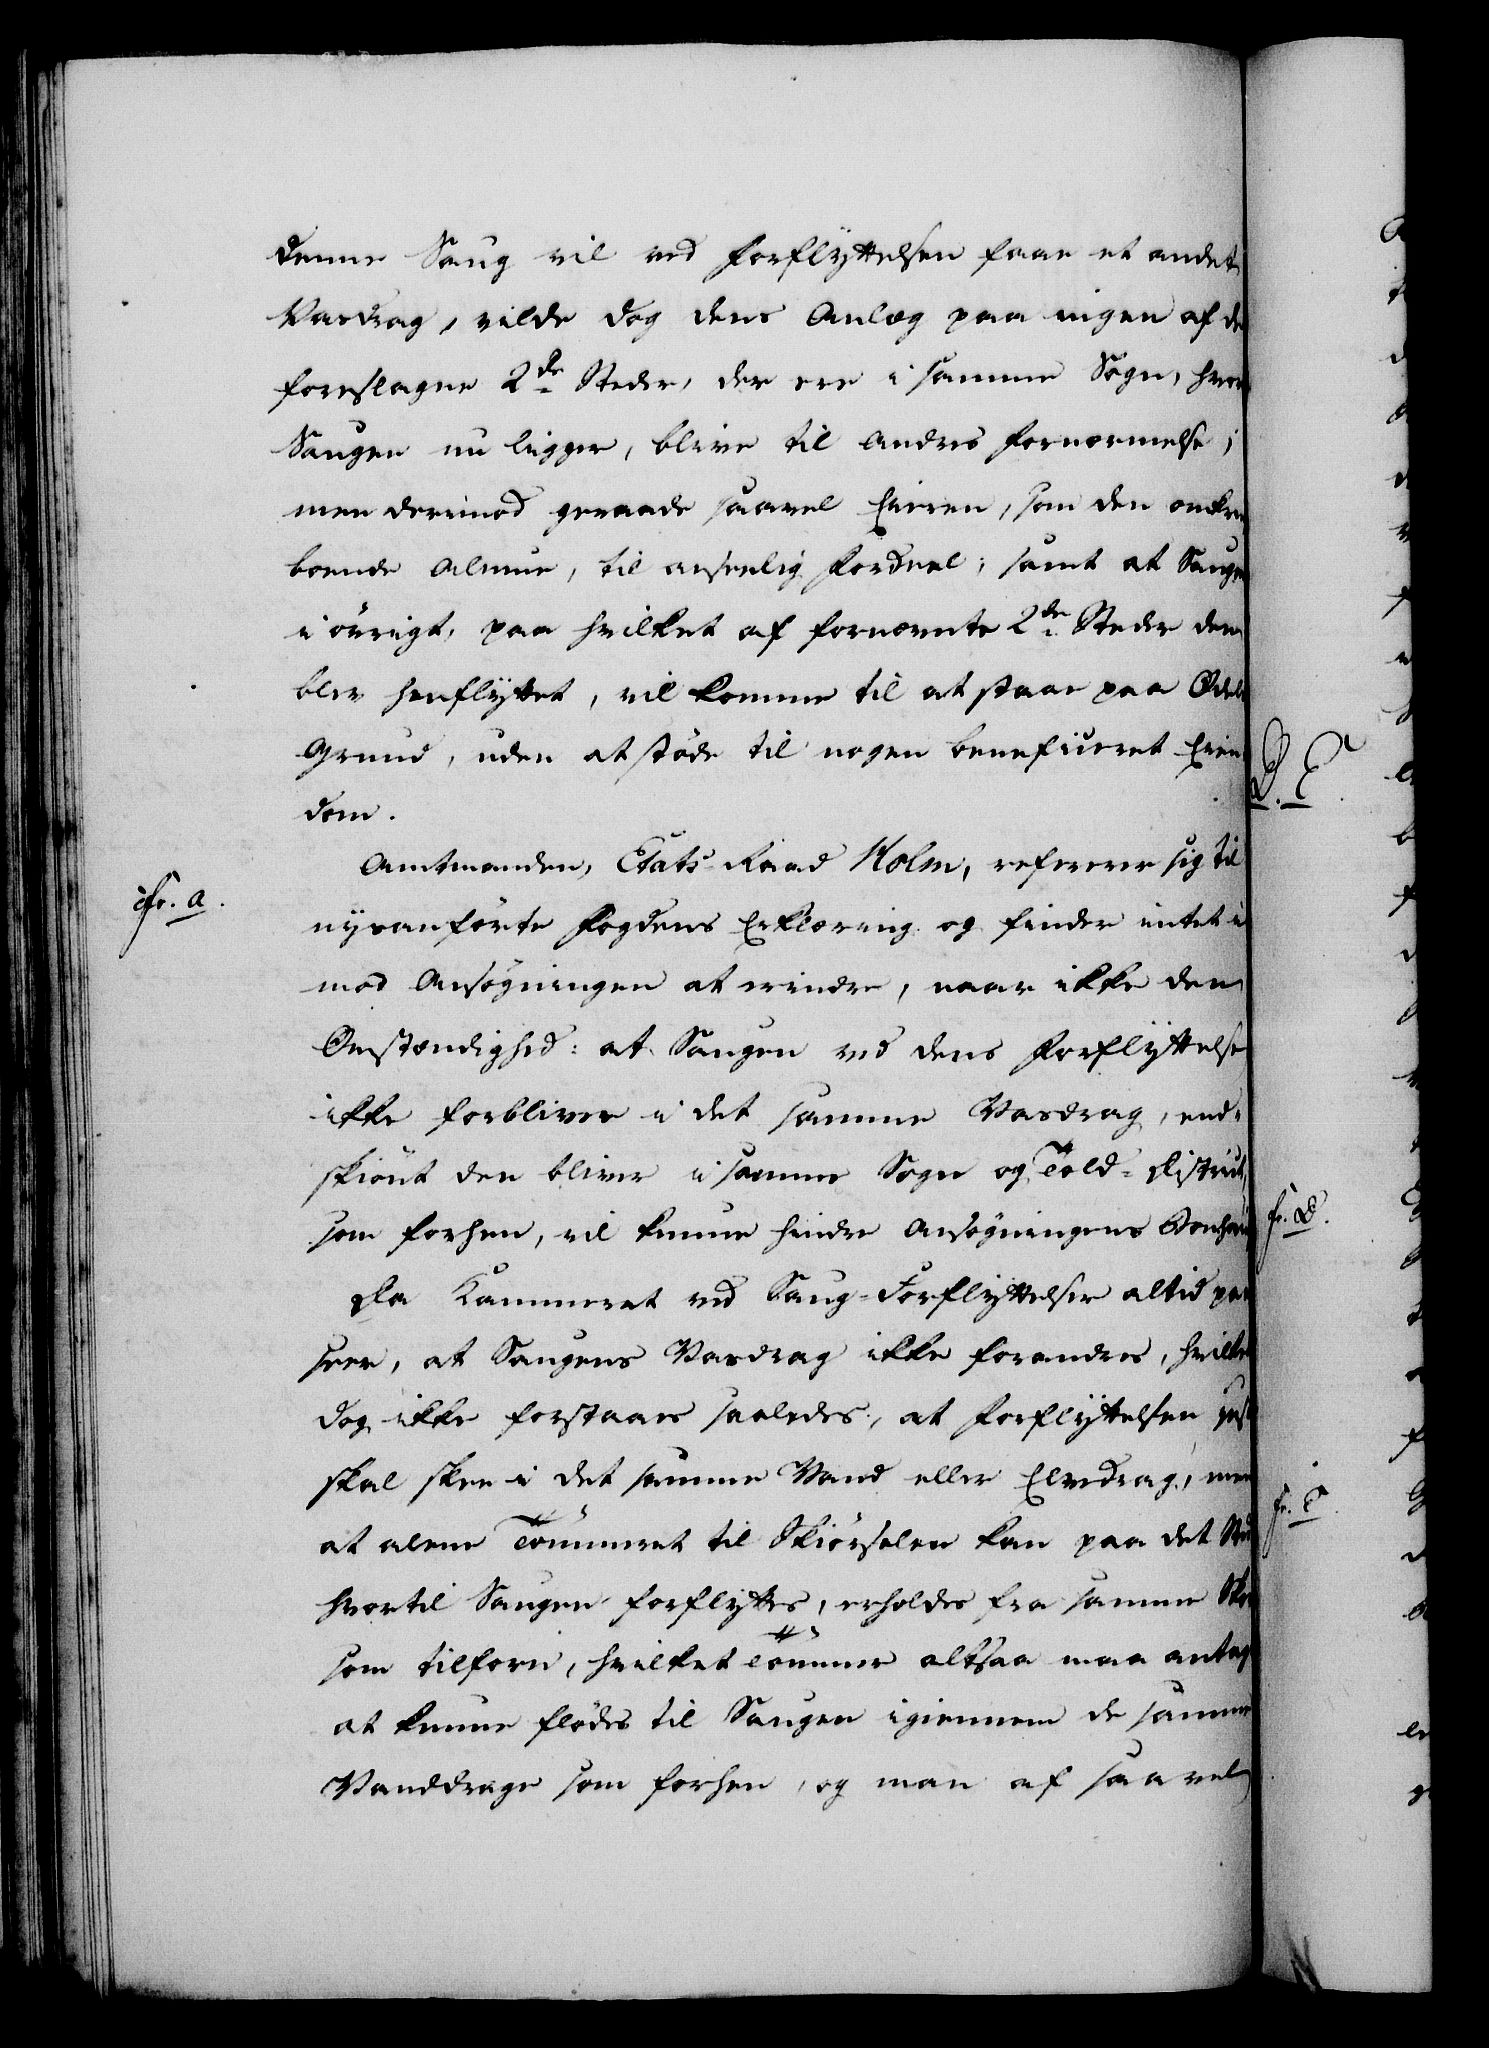 denne Saug vil ved Forflyttelsen faae et andet
Vasdrag, vilde dog dens Anlæg paa ingen af de
foreslagne 2de Steder, der ere i samme Sogn, hvor
Saugen nu ligger, blive til andres Fornærmelse;
men derimod geraade saavel Eieren, som den omkring
boende Almue, til anseelig Fordeel; samt at Saugen
i øvrigt, paa hvilket af fornævnte 2de Steder den
blev henflyttet, vil komme til at staae paa Odels
Grund, uden at støde til nogen beneficeret Eien
dom.
Amtmanden, Etats-Raad Holm, refererer sig til
cfr. a.
nysanførte Fogdens Erklæring og finder intet i
mod Ansøgningen at erindre, naar ikke den
Omstændighed: at Saugen ved dens Forflyttelse
ikke forbliver i det samme Vasdrag, end-
skiønt den bliver i samme Sogn og Told-District,
som forhen, vil kunne hindre Ansøgningens
Da Kammeret ved Saug-Forflyttelser altid paa
seer, at Saugens Vasdrag ikke forandres, hvilket
dog ikke forstaaes saaledes, at Forflyttelsen just
skal skee i det samme Vand eller Elvedrag, men
at alene Tømmeret til Skiørselen kan paa det Sted
hvortil Saugen forflyttes, erholdes fra samme Skov
som tilforn, hvilket Tømmer altsaa maa antages
at kunne flødes til Saugen igiennem de samme
Vanddrage som forhen, og man af saavel